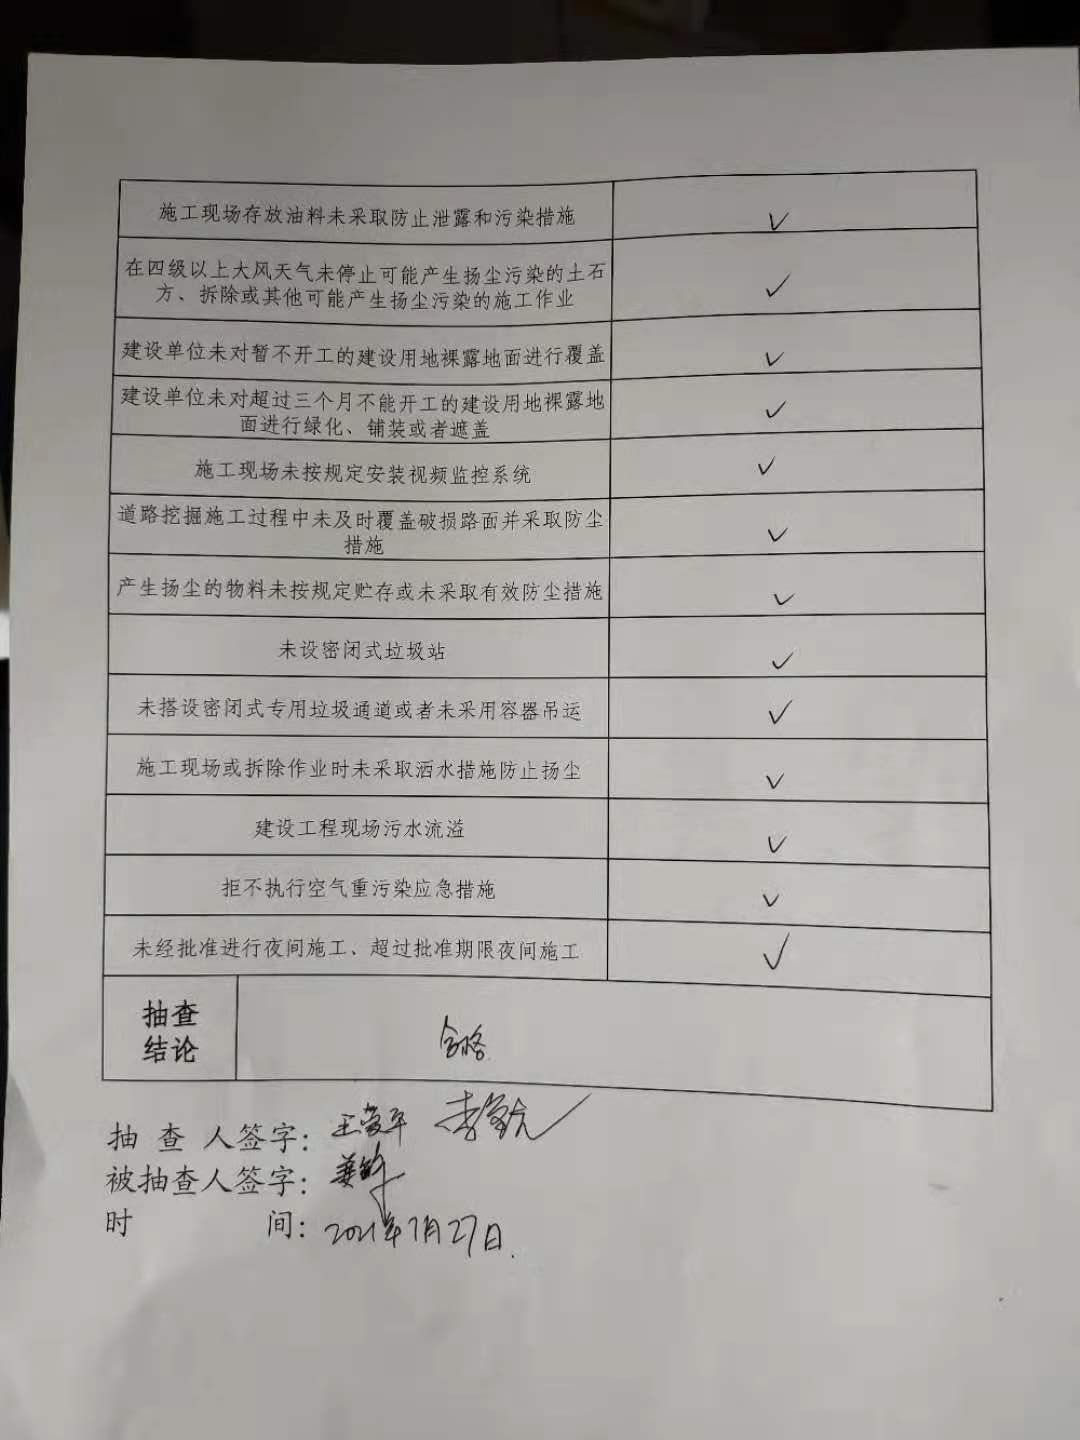 施工现场存放油料未采取防止泄露和污染措施 ✓
在四级以上大风天气未停止可能产生扬尘污染的土石
方、拆除或其他可能产生扬尘污染的施工作业 ✓
建设单位未对暂不开工的建设用地裸露地面进行覆盖 ✓
建设单位未对超过三个月不能开工的建设用地裸露地
面进行绿化、铺装或者遮盖 ✓
施工现场未按规定安装视频监控系统 ✓
道路挖掘施工过程中未及时覆盖破损路面并采取防尘
措施 ✓
产生扬尘的物料未按规定贮存或未采取有效防尘措施 ✓
未设密闭式垃圾站 ✓
未搭设密闭式专用垃圾通道或者未采用容器吊运 ✓
施工现场或拆除作业时未采取洒水措施防止扬尘 ✓
建设工程现场污水流溢 ✓
拒不执行空气重污染应急措施 ✓
未经批准进行夜间施工、超过批准期限夜间施工 ✓
抽查
结论
合格
抽 查 人签字：
被抽查人签字：
时 间：2021年7月27日.